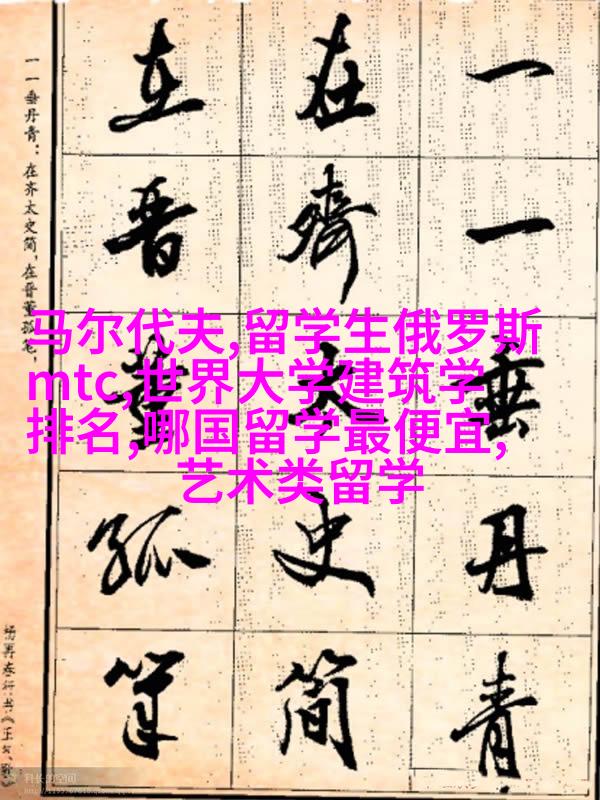 一一垂丹青
在齐太史简
在晋董孤笔
一一垂丹青：在齐太史简，在晋董孤笔，
马尔代夫,留学生俄罗斯
mtc,世界大学建筑学
排名,哪国留学最便宜,
艺术类留学
科长的空间